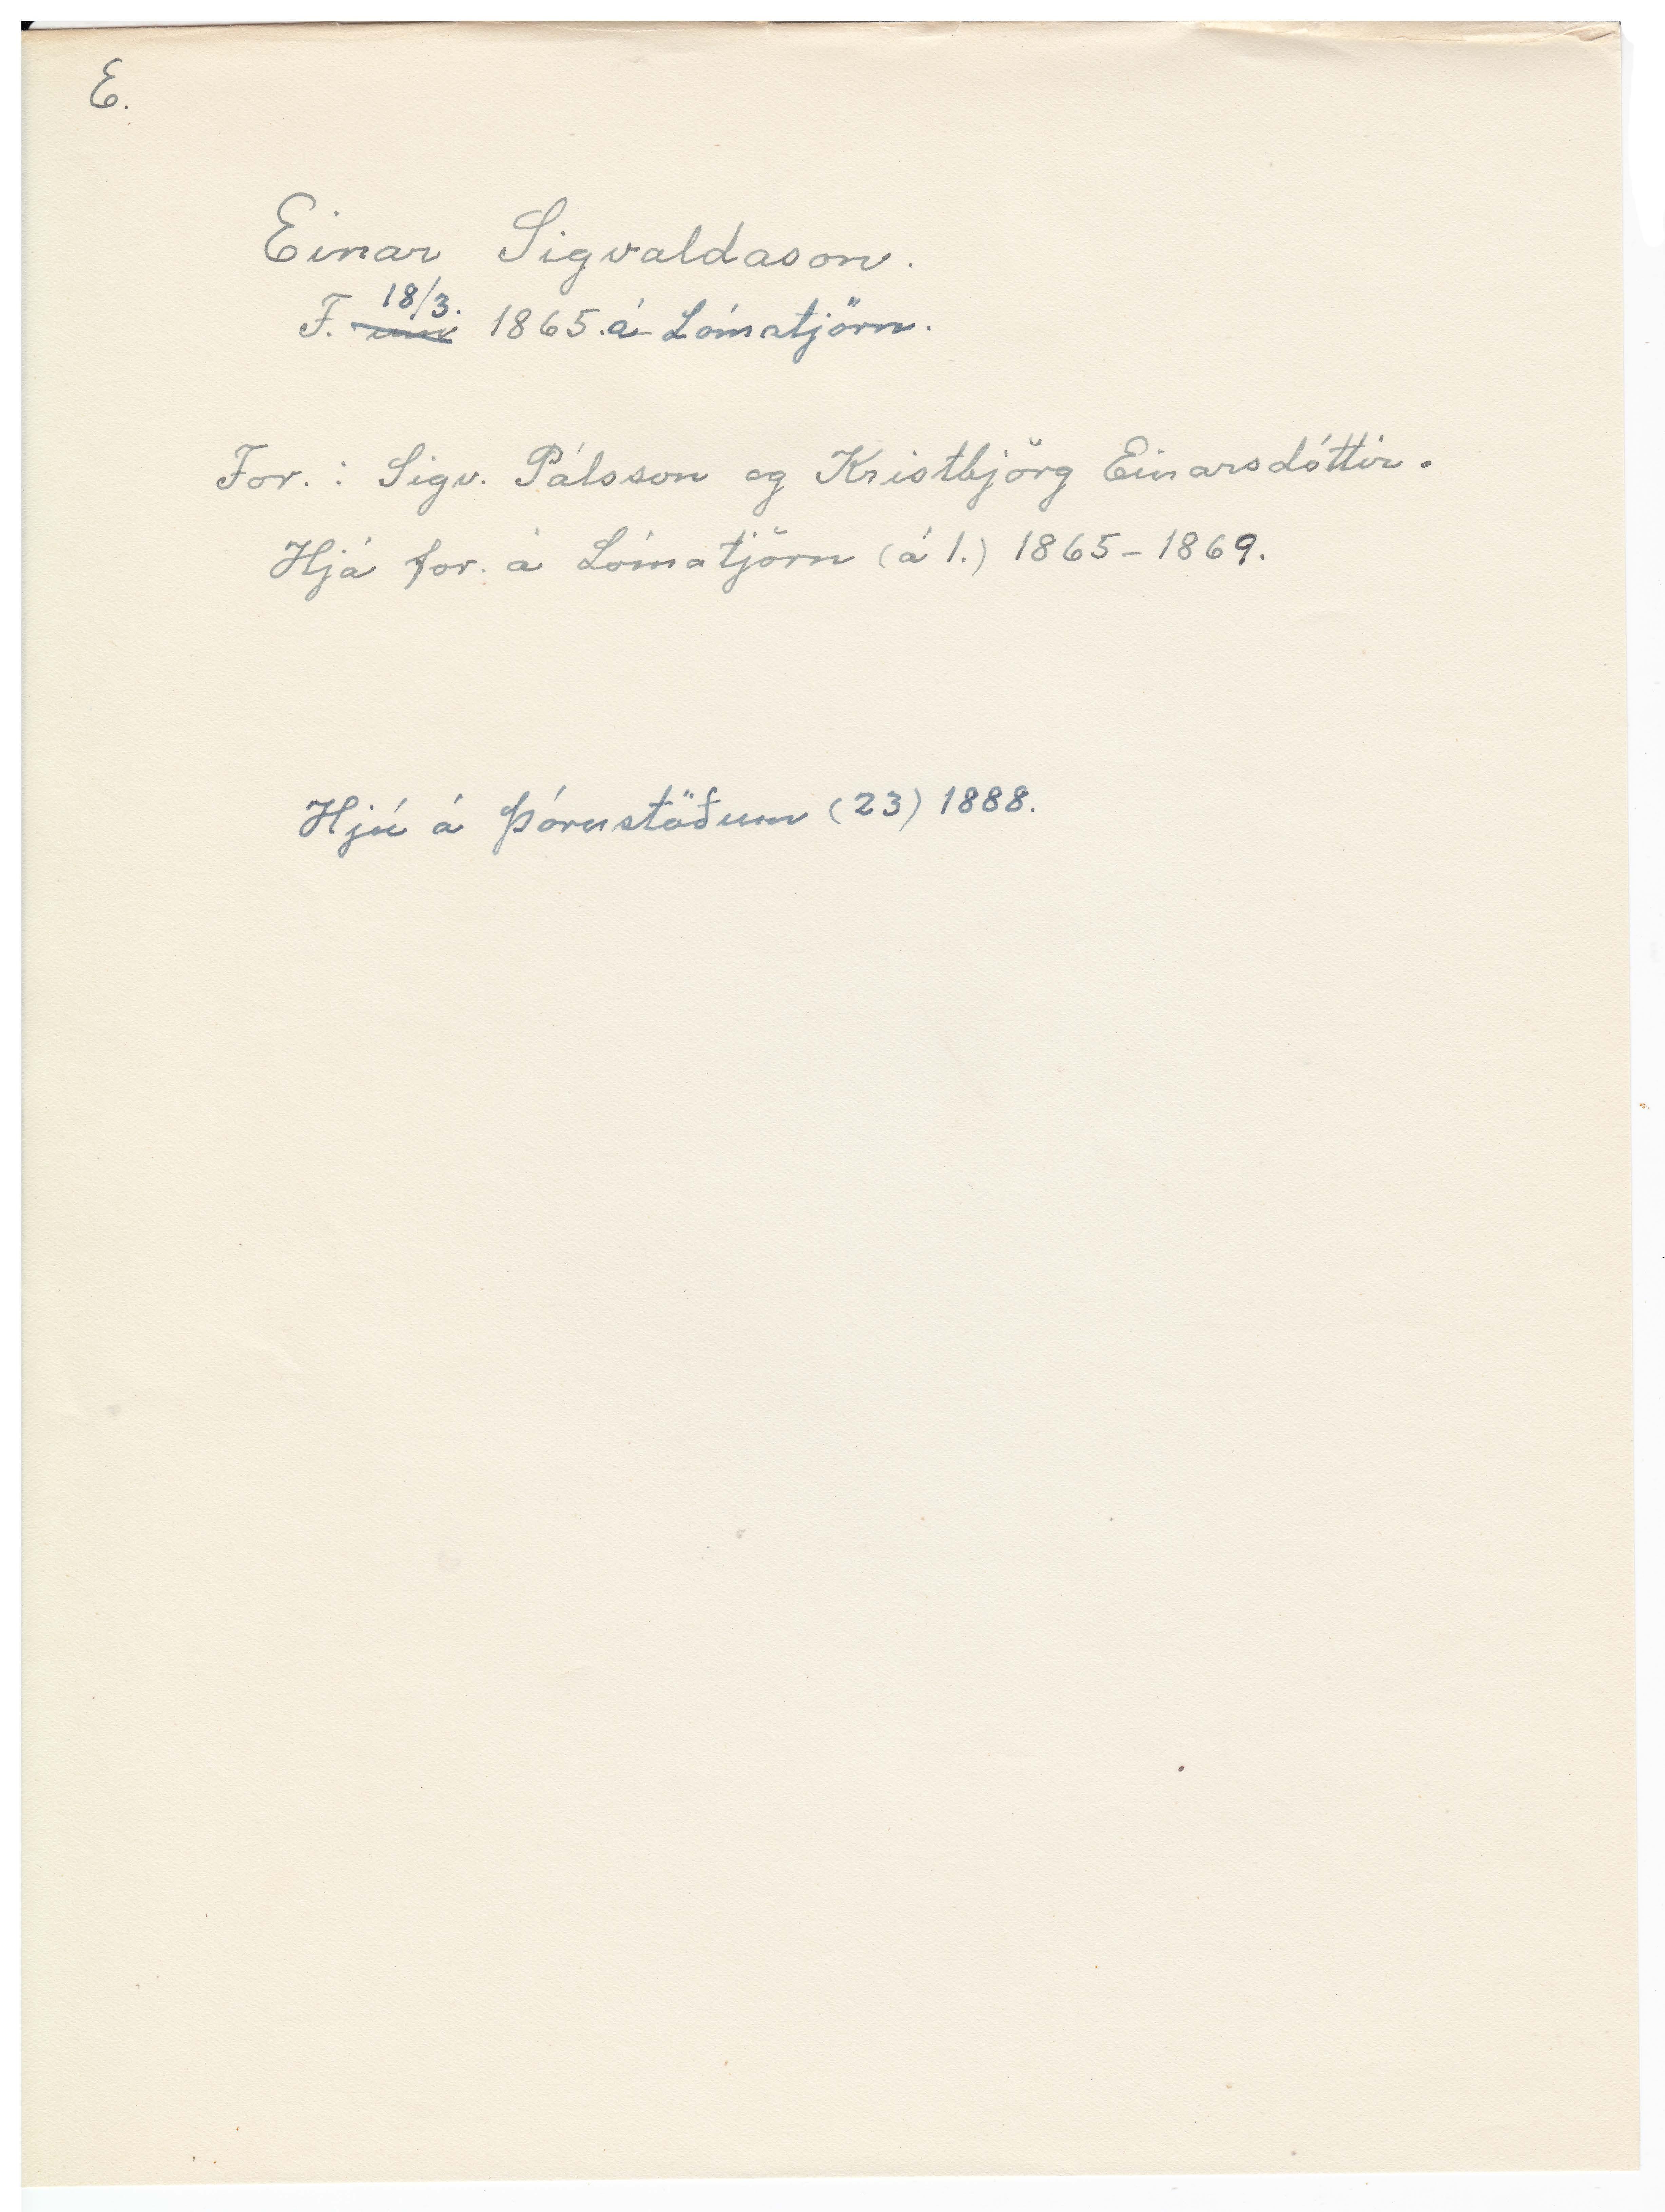 E.
Einar Sigvaldason.
F. ~~um~~ 18/3. 1865 á Lómatjörn.
For.: Sigv. Pálsson og Kristbjörg Einarsdóttir.
Hjá for. á Lómatjörn (á 1.) 1865-1869.
Hjú á Þórustöðum (23) 1888.